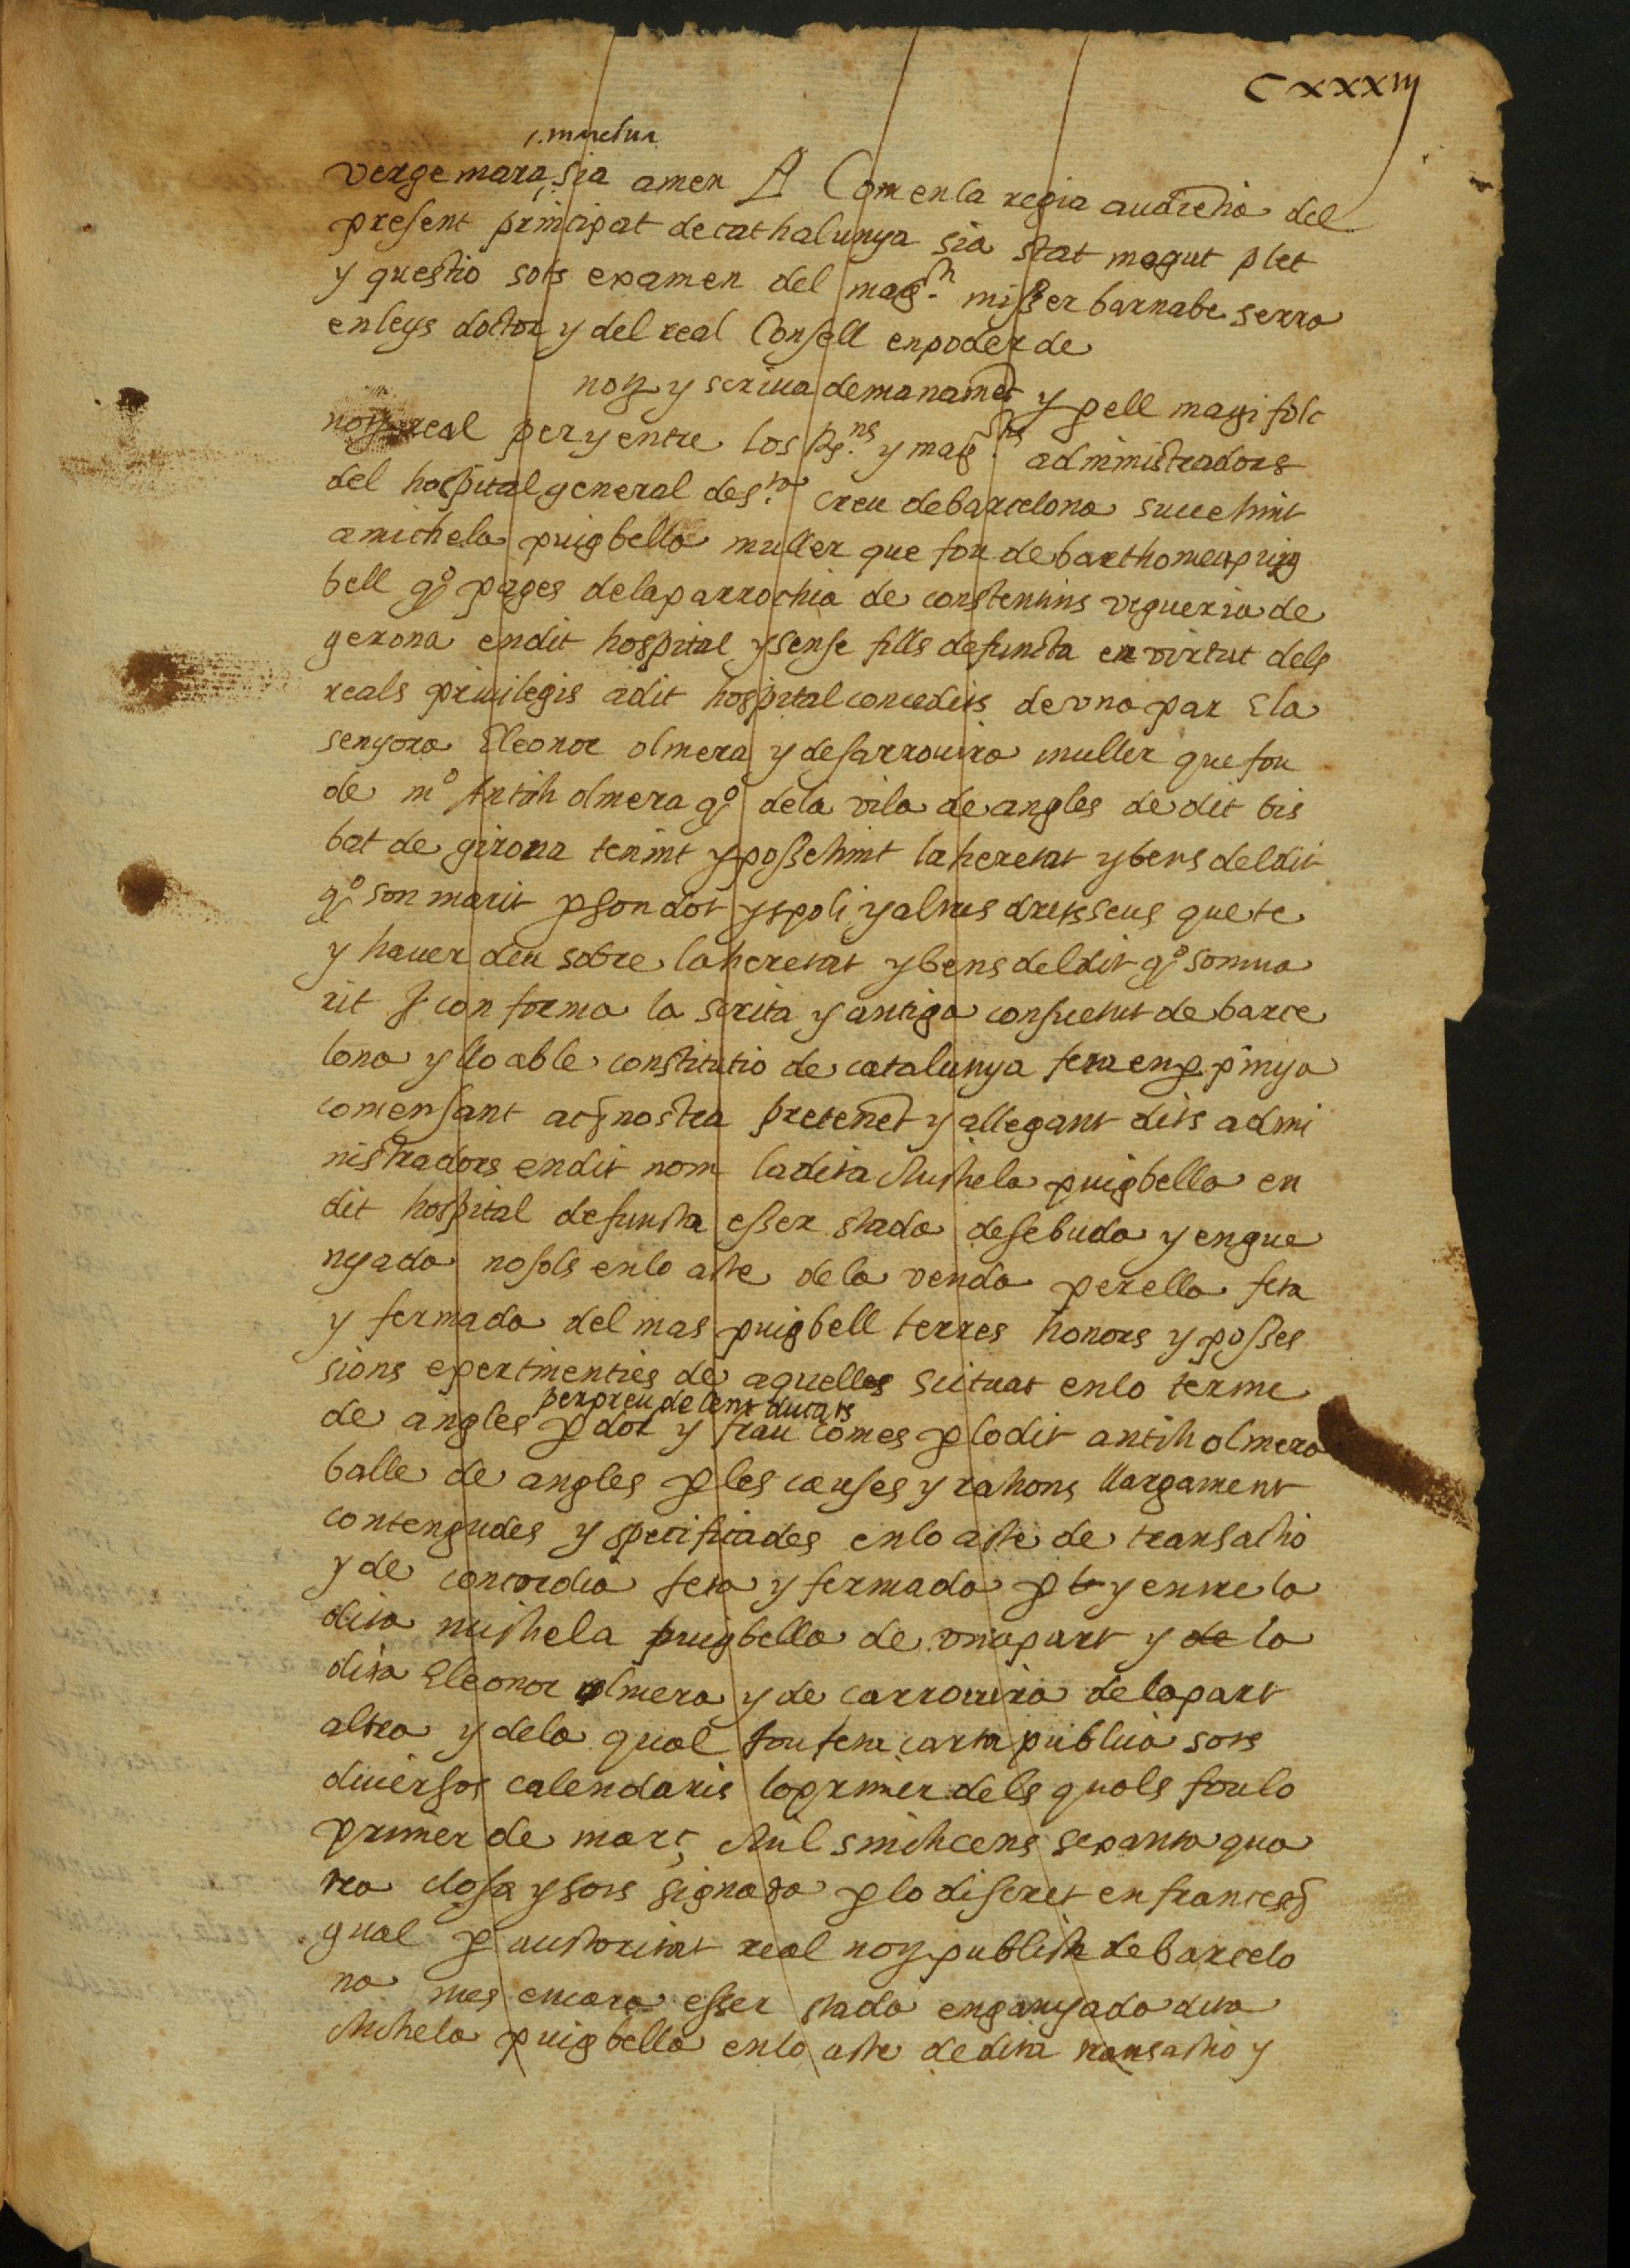 CXXXIIJ
verge maria sia amen Com en la regia audiencia del
present principat de cathalunya sia stat mogut plet
y questio sots examen del mag.ch misser barnabe serra
en leys doctor y del real Consell en poder de
noty y scriua de manamet y p ell magi folc
noty real per y entre los Rs.ns y mag.chs administradors
del hospital general de s.ta creu de barcelona succehint
a michela puigbella muller que fou de barthomeu puig
bell qº pages de la parrochia de constentins vegueria de
gerona en dit hospital y sense fills defuncta en virtut dels
reals priuilegis a dit hospital concedits de vna par E la
senyora Eleonor olmera y de sarrouira muller que fou
de mº Antich olmera qº de la vila de angles de dit bis
bat de girona tenint y possehint la heretat y bens del dit
qº son marit p son dot y spoli y altres drets seus que te
y hauer deu sobre la heretat y bens del dit qº son ma
rit con forma la scrita y antiga consuetut de barce
lona y lloable constitutio de catalunya feta en p pinya
comensant nostra pretenet y allegant dits admi
nistradors en dit nom la dita Michela puigbella en
dit hospital defuncta esser stada desebuda y engue
nyada no sols en lo acte de la venda per ella feta
y fermada del mas puigbell terres honors y posses
sions e pertinenties de aquelles scituat en lo terme
per preu de cent ducats
de angles p dol y frau comes p lo dit antich olmera
balle de angles p les causes y rahons llargament
contengudes y specificades en lo acte de transactio
y de concordia feta y fermada p y entre la
dita michela puigbella de vna part y de la
dita Eleonor olmera y de carrouira de la part
altra y de la qual fou feta carta publica sots
diuersos calendaris lo primer dels quals fou lo
primer de març Mil sinchcens sepanta qua
tra closa y sots signada p lo discret en francesch
gual p auctoritat real noty publich de barcelo
na mes encara esser stada enganyada dita
Michela puigbella en lo acte de dita transactio y